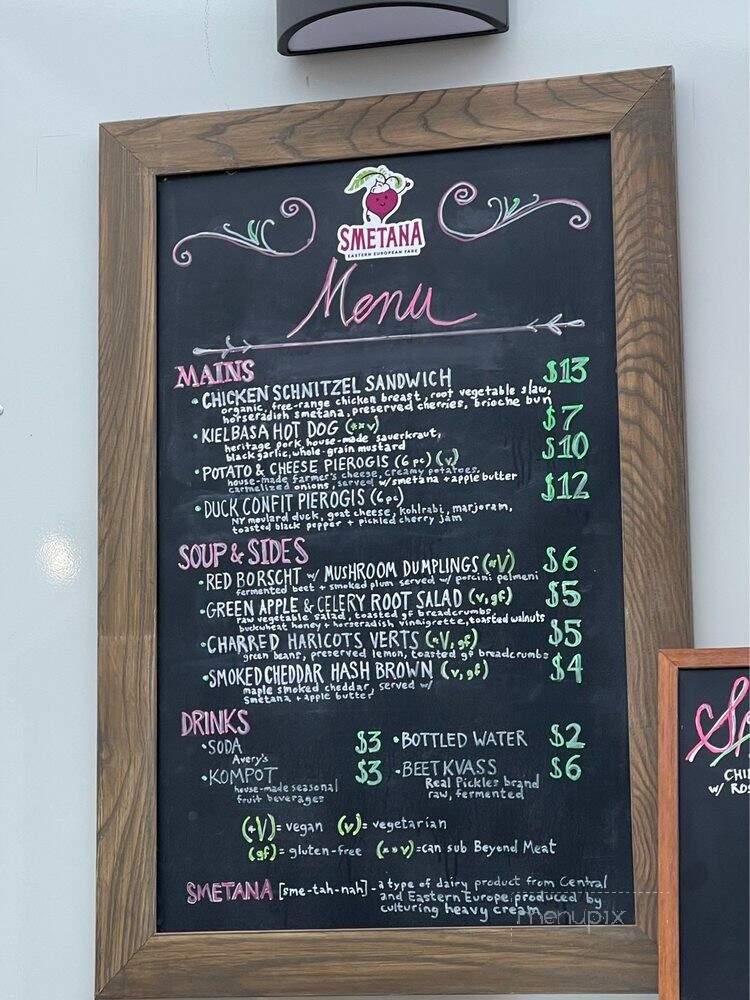 SMETANA
EASTERN EUROPEAN FARE
Menu
MAINS
• CHICKEN SCHNITZEL SANDWICH $13
organic, free-range chicken breast, root vegetable slaw,
horseradish smetana, preserved cherries, brioche bun
• KIELBASA HOT DOG (**v) $7
heritage pork, house-made sauerkraut,
black garlic, whole-grain mustard
• POTATO & CHEESE PIEROGIS (6 pc) (v) $10
house-made farmer's cheese, creamy potatoes,
carmelized onions, served w/ smetana + apple butter
• DUCK CONFIT PIEROGIS (6 pc) $12
NY moulard duck, goat cheese, kohlrabi, marjoram,
toasted black pepper + pickled cherry jam
SOUP & SIDES
• RED BORSCHT w/ MUSHROOM DUMPLINGS (*V) $6
fermented beet + smoked plum served w/ porcini pelmeni
• GREEN APPLE & CELERY ROOT SALAD (v, gf) $5
raw vegetable salad, toasted gf breadcrumbs,
buckwheat honey + horseradish vinaigrette, toasted walnuts
• CHARRED HARICOTS VERTS (*V, gf) $5
green beans, preserved lemon, toasted gf breadcrumbs
• SMOKED CHEDDAR HASH BROWN (v, gf) $4
maple smoked cheddar, served w/
Smetana + apple butter
DRINKS
• SODA $3 • BOTTLED WATER $2
Avery's
• KOMPOT $3 • BEET KVASS $6
house-made seasonal
fruit beverages
Real Pickles brand
raw, fermented
(*V) = vegan (v) = vegetarian
(gf) = gluten-free (**v) = can sub Beyond Meat
SMETANA [sme-tah-nah] - a type of dairy product from Central
and Eastern Europe produced by
culturing heavy cream
menupix
CHI
w/ ROS